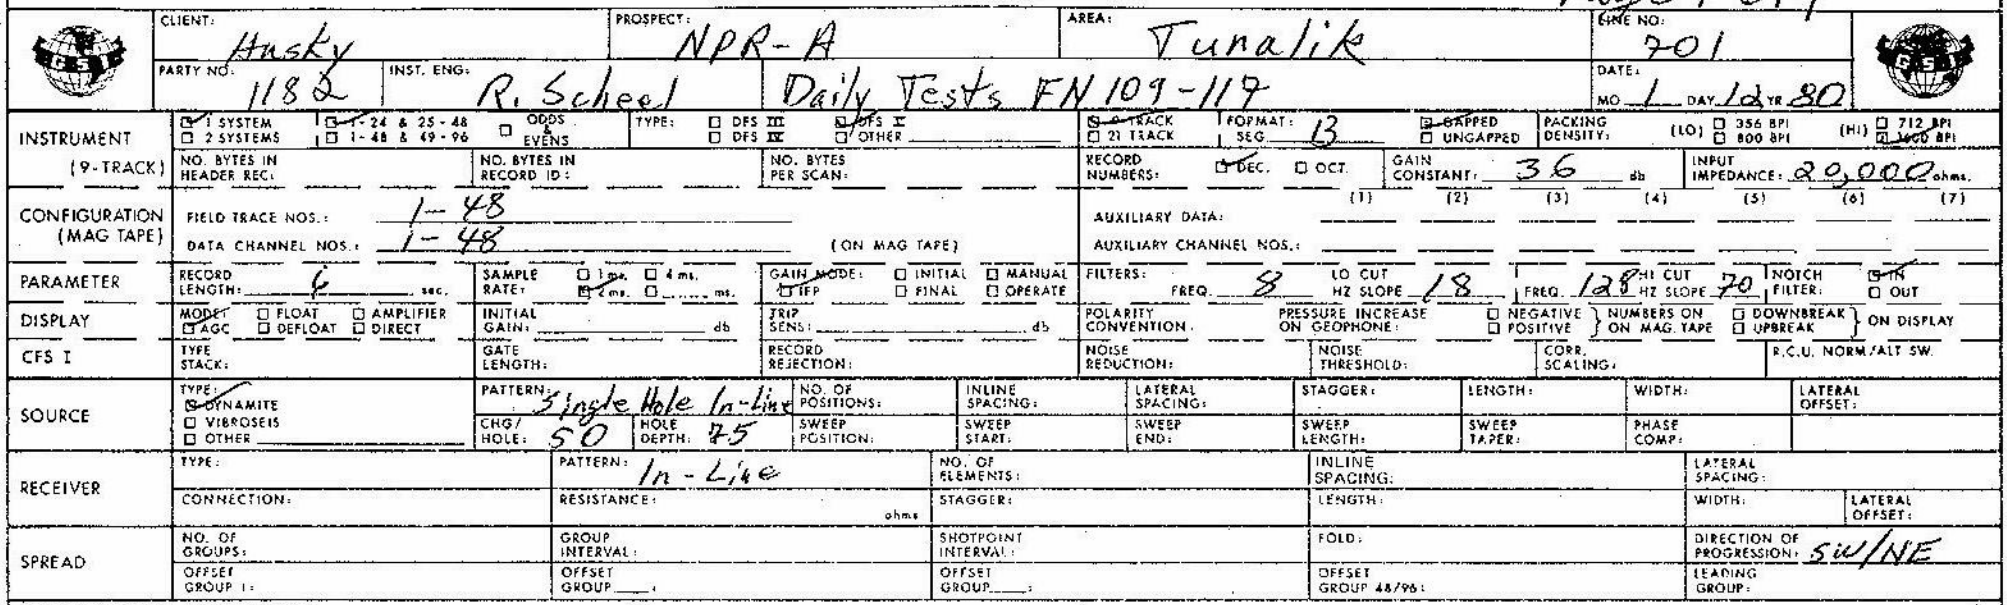 CLIENT: Husky PROSPECT: NPR-A AREA: Tunalik LINE NO: 701
GSI
PARTY NO: 1182 INST. ENG: R. Scheel Daily Tests FN 109-117 DATE: MO 1 DAY 12 YR 80
GSI
INSTRUMENT (9-TRACK)
1 SYSTEM 1-24 & 25-48 ODDS & EVENS TYPE: DFS III DFS V 9 TRACK FORMAT: SEG B GAPPED PACKING DENSITY: (LO) 356 BPI (HI) 712 BPI
2 SYSTEMS 1-48 & 49-96 DFS IV OTHER 21 TRACK UNGAPPED 800 BPI 1600 BPI
NO. BYTES IN HEADER REC: NO. BYTES IN RECORD ID: NO. BYTES PER SCAN: RECORD NUMBERS: DEC. OCT. GAIN CONSTANT: 36 db INPUT IMPEDANCE: 20,000 ohms.
CONFIGURATION (MAG TAPE)
FIELD TRACE NOS.: 1-48 AUXILIARY DATA: (1) (2) (3) (4) (5) (6) (7)
DATA CHANNEL NOS.: 1-48 (ON MAG TAPE) AUXILIARY CHANNEL NOS.:
PARAMETER RECORD LENGTH: 6 sec. SAMPLE RATE: 1 ms. 4 ms. 2 ms. ms. GAIN MODE: INITIAL MANUAL IFP FINAL OPERATE FILTERS: FREQ. 8 LO CUT HZ SLOPE 18 FREQ. 128 HI CUT HZ SLOPE 70 NOTCH FILTER: IN OUT
DISPLAY MODE: FLOAT AMPLIFIER AGC DEFLOAT DIRECT INITIAL GAIN: db TRIP SENS: db POLARITY CONVENTION. PRESSURE INCREASE ON GEOPHONE: NEGATIVE POSITIVE NUMBERS ON ON MAG. TAPE DOWNBREAK UPBREAK ON DISPLAY
CFS I TYPE STACK: GATE LENGTH: RECORD REJECTION: NOISE REDUCTION: NOISE THRESHOLD: CORR. SCALING: R.C.U. NORM/ALT SW.
SOURCE
TYPE: DYNAMITE VIBROSEIS OTHER PATTERN: Single Hole In-Line NO. OF POSITIONS: INLINE SPACING: LATERAL SPACING: STAGGER: LENGTH: WIDTH: LATERAL OFFSET:
CHG/HOLE: 50 HOLE DEPTH: 75 SWEEP POSITION: SWEEP START: SWEEP END: SWEEP LENGTH: SWEEP TAPER: PHASE COMP:
RECEIVER
TYPE: PATTERN: In-Line NO. OF ELEMENTS: INLINE SPACING: LATERAL SPACING:
CONNECTION: RESISTANCE: ohms STAGGER: LENGTH: WIDTH: LATERAL OFFSET:
SPREAD
NO. OF GROUPS: GROUP INTERVAL: SHOTPOINT INTERVAL: FOLD: DIRECTION OF PROGRESSION: SW/NE
OFFSET GROUP 1: OFFSET GROUP : OFFSET GROUP : OFFSET GROUP 48/96: LEADING GROUP: